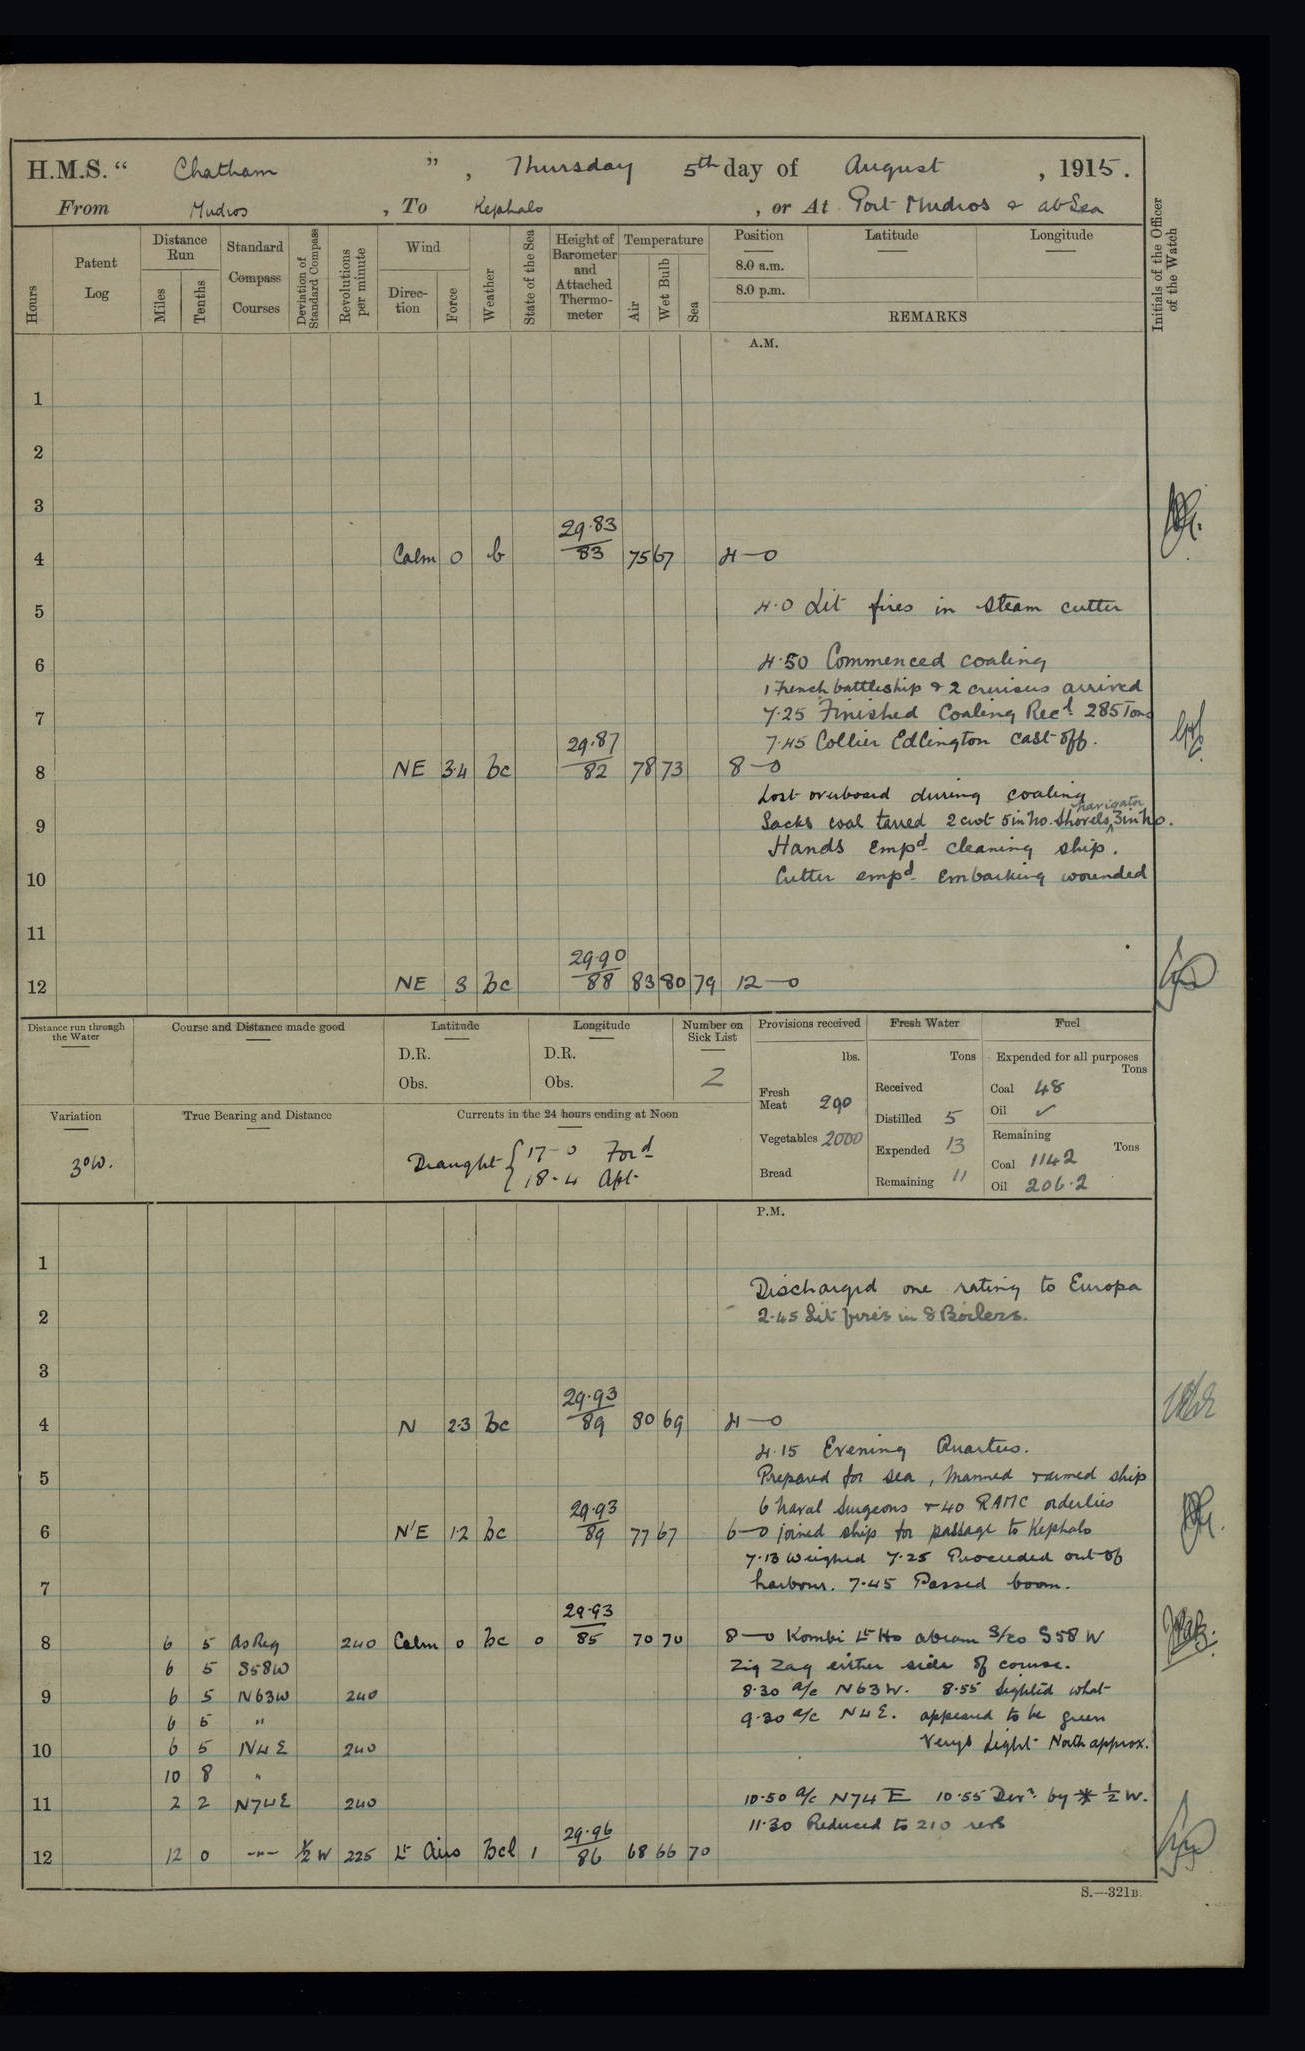 H.M.S. “ Chatham ”, Thursday 5th day of August , 1915.
From Mudros , To Kephalo , or At Port Mudros & at Sea
Hours
Patent Log
Distance Run
Miles
Tenths
Standard Compass Courses
Deviation of Standard Compass
Revolutions per minute
Wind
Direction
Force
Weather
State of the Sea
Height of Barometer and Attached Thermometer
Temperature
Air
Wet Bulb
Sea
Position
8.0 a.m.
8.0 p.m.
Latitude
Longitude
REMARKS
Initials of the Officer of the Watch
A.M.
1
2
3
29.83
4 Calm 0 b 83 75 67 4—0
5 4.0 Lit fires in steam cutter
6 4.50 Commenced coaling
1 French battleship & 2 cruisers arrived
7 7.25 Finished Coaling Recd 285 Tons
29.87 7.45 Collier Edlington cast off.
8 NE 3.4 bc 82 78 73 8—0
Lost overboard during coaling
navigator
9 Sacks coal tarred 2 cwt 5 in No. Shovels, 3 in No.
Hands empd cleaning ship.
10 Cutter empd embarking wounded
11
29.90
12 NE 3 bc 88 83 80 79 12—0
Distance run through the Water
Course and Distance made good
Latitude
D.R.
Obs.
Longitude
D.R.
Obs.
Number on Sick List
2
Provisions received
lbs.
Fresh Meat 290
Vegetables 2000
Bread
Fresh Water
Tons
Received
Distilled 5
Expended 13
Remaining 11
Fuel
Expended for all purposes
Tons
Coal 48
Oil ✓
Remaining
Tons
Coal 1142
Oil 206.2
Variation
3°W.
True Bearing and Distance
Currents in the 24 hours ending at Noon
Draught { 17-0 Ford
18-4 Aft
P.M.
1
Discharged one rating to Europa
2 2.45 Lit fires in 8 Boilers.
3
29.93
4 N 2.3 bc 89 80 69 4—0
4.15 Evening Quarters.
5 Prepared for sea, manned & armed ship
29.93 6 Naval Surgeons & 40 RAMC orderlies
6 N'E 1.2 bc 89 77 67 6—0 joined ship for passage to Kephalo
7.13 Weighed 7.25 Proceeded out of
7 harbour. 7.45 Passed boom.
29.93
8 6 5 As Req 240 Calm 0 bc 0 85 70 70 8—0 Kombi Lt Ho abeam S/co S58W
6 5 S58W Zig Zag either side of course.
9 6 5 N63W 240 8.30 a/c N63W. 8.55 Sighted what
6 5 " 9.30 a/c N4E. appeared to be green
10 6 5 N4E 240 Verys Light North approx.
10 8 "
11 2 2 N74E 240 10.50 a/c N74E 10.55 Devn by * ½ W.
29.96 11.30 Reduced to 210 revs
12 12 0 -"- ½ W 225 Lt Airs Bcl 1 86 68 66 70
S.—321B.